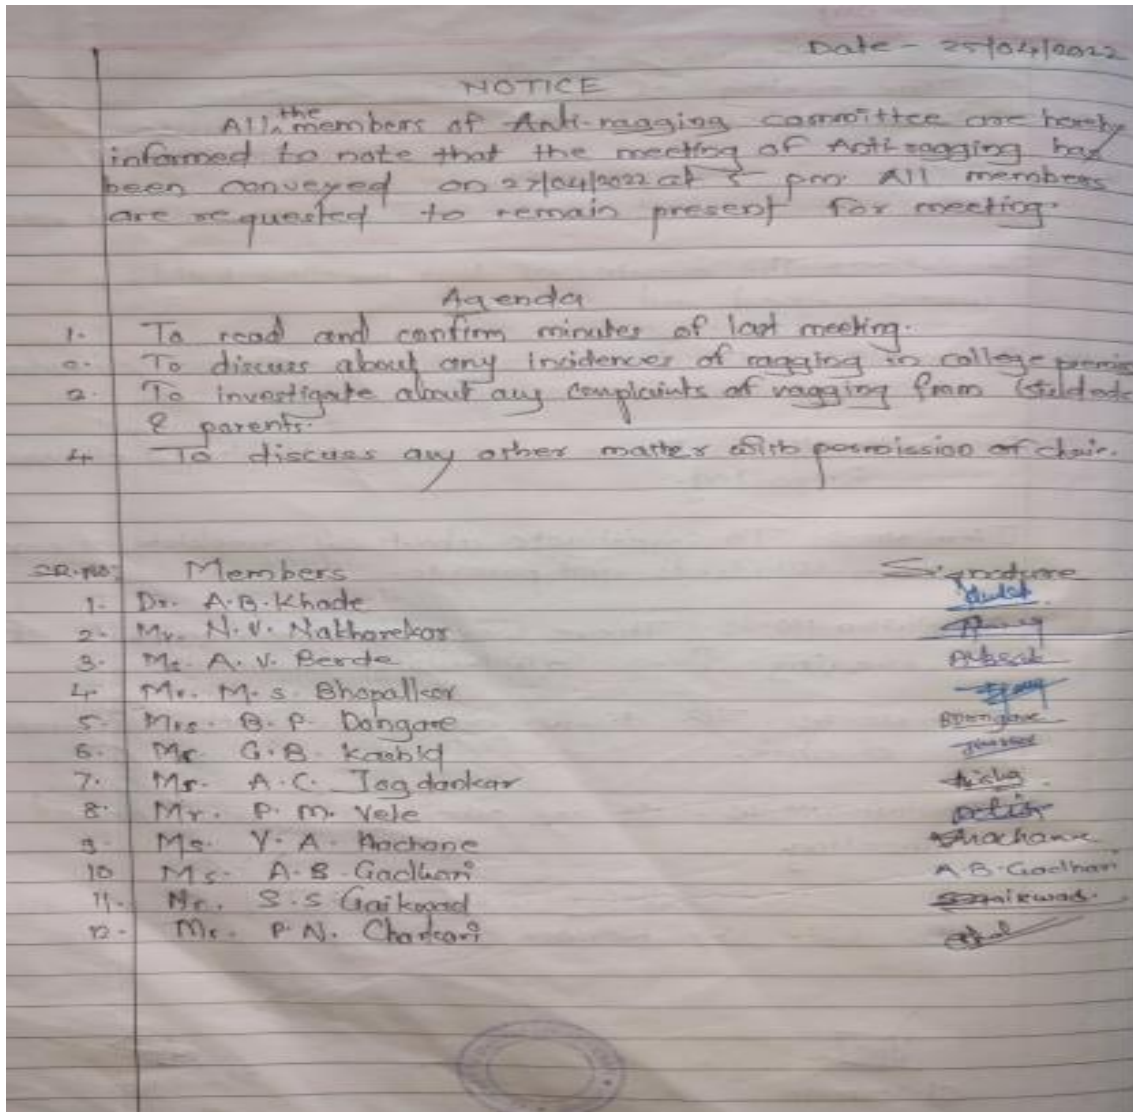 Date - 25/04/2022
NOTICE
All the members of Anti-ragging committee are hereby
informed to note that the meeting of Anti-ragging has
been conveyed on 27/04/2022 at 5 pm. All members
are requested to remain present for meeting.
Agenda
1. To read and confirm minutes of last meeting.
To discuss about any incidences of ragging in college premis
To investigate about any complaints of ragging from
& parents.
4 To discuss any other matter with permission of chair.
SR.NO. Members Signature
1. Dr. A.B. Khade
2. Mr. N.V. Nakharekar
3. Mr. A.V. Berde
4. Mr. M.S. Bhopalkar
5. Mrs. B.P. Dongare BDongare
6. Mr. G.B. Kashid
7. Mr. A.C. Jagdankar
8. Mr. P.M. Vele
9. Ms. Y.A. Aachane
10 Ms. A.B. Gadhari A.B.Gadhari
11. Mr. S.S Gaikwad
12. Mr. P.N. Charkari